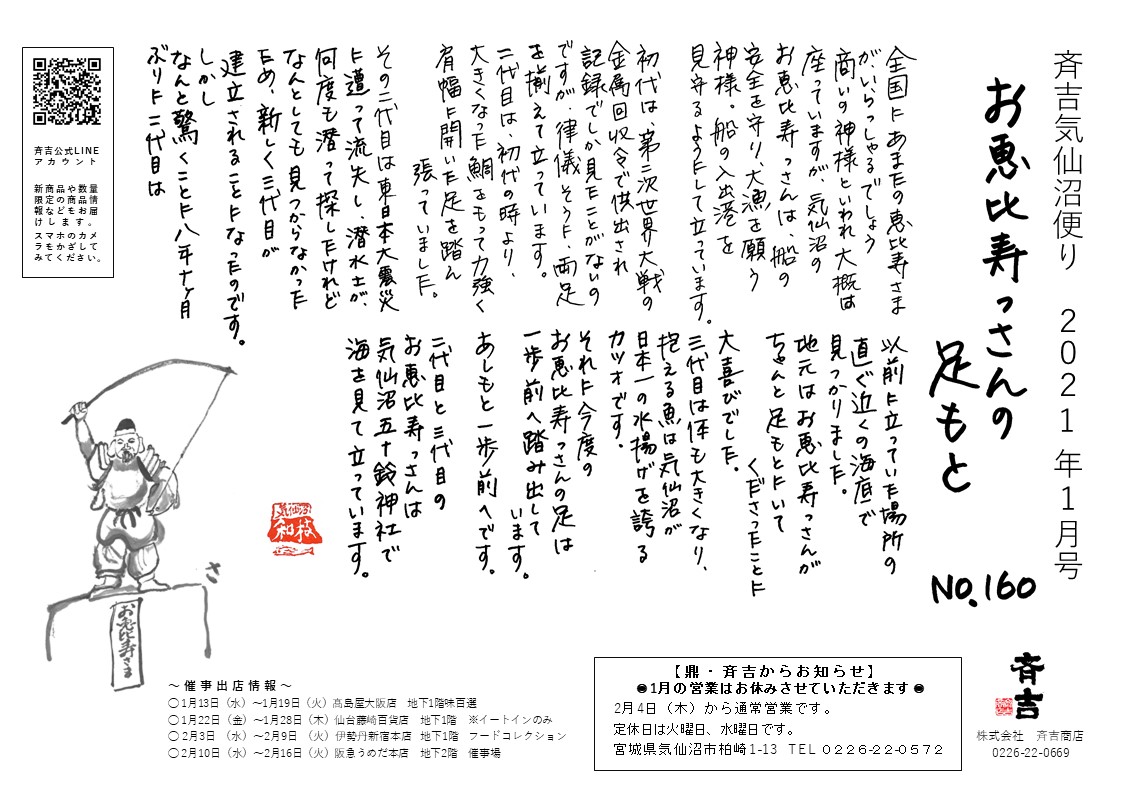 斉吉気仙沼便り　2021年1月号
お恵比寿っさんの
足もと
No.160
全国にあまたの恵比寿さま
がいらっしゃるでしょう
商いの神様といわれ大概は
座っていますが、気仙沼の
お恵比寿っさんは、船の
安全を守り、大漁を願う
神様。船の入出港を
見守るようにして立っています。
初代は、第二次世界大戦の
金属回収令で供出され
記録でしか見たことがないの
ですが、律儀そうに、両足
を揃えて立っています。
二代目は、初代の時より、
大きくなった鯛をもって力強く
肩幅に開いた足を踏ん
張っていました。
その二代目は東日本大震災
に遭って流失し、潜水士が、
何度も潜って探したけれど
なんとしても見つからなかった
ため、新しく三代目が
建立されることになったのです。
しかし
なんと驚くことに八年ヶ月
ぶりに二代目は
以前に立っていた場所の
直ぐ近くの海底で
見っかりました。
地元はお恵比寿っさんが
ちゃんと足もとにいて
くださったことに
大喜びでした。
三代目は体も大きくなり、
抱える魚は気仙沼が
日本一の水揚げを誇る
カツオです。
それに今度の
お恵比寿っさんの足は
一歩前へ踏み出して
います。
あしもと一歩前へです。
二代目と三代目の
お恵比寿っさんは
気仙沼五十鈴神社で
海を見て立っています。
気仙沼
和枝
さ
お恵比寿さま
斉吉公式LINE
アカウント
新商品や数量
限定の商品情
報などもお届
けします。
スマホのカメ
ラをかざして
みてください。
～催事出店情報～
〇1月13日（水）～1月19日（火）髙島屋大阪店　地下1階味百選
〇1月22日（金）～1月28日（木）仙台藤崎百貨店　地下1階　※イートインのみ
〇2月3日　（水）～2月9日　（火）伊勢丹新宿本店　地下1階　フードコレクション
〇2月10日（水）～2月16日（火）阪急うめだ本店　地下2階　催事場
【鼎・斉吉からお知らせ】
◉1月の営業はお休みさせていただきます◉
2月4日（木）から通常営業です。
定休日は火曜日、水曜日です。
宮城県気仙沼市柏崎1-13　TEL 0226-22-0572
斉吉
株式会社　斉吉商店
0226-22-0669